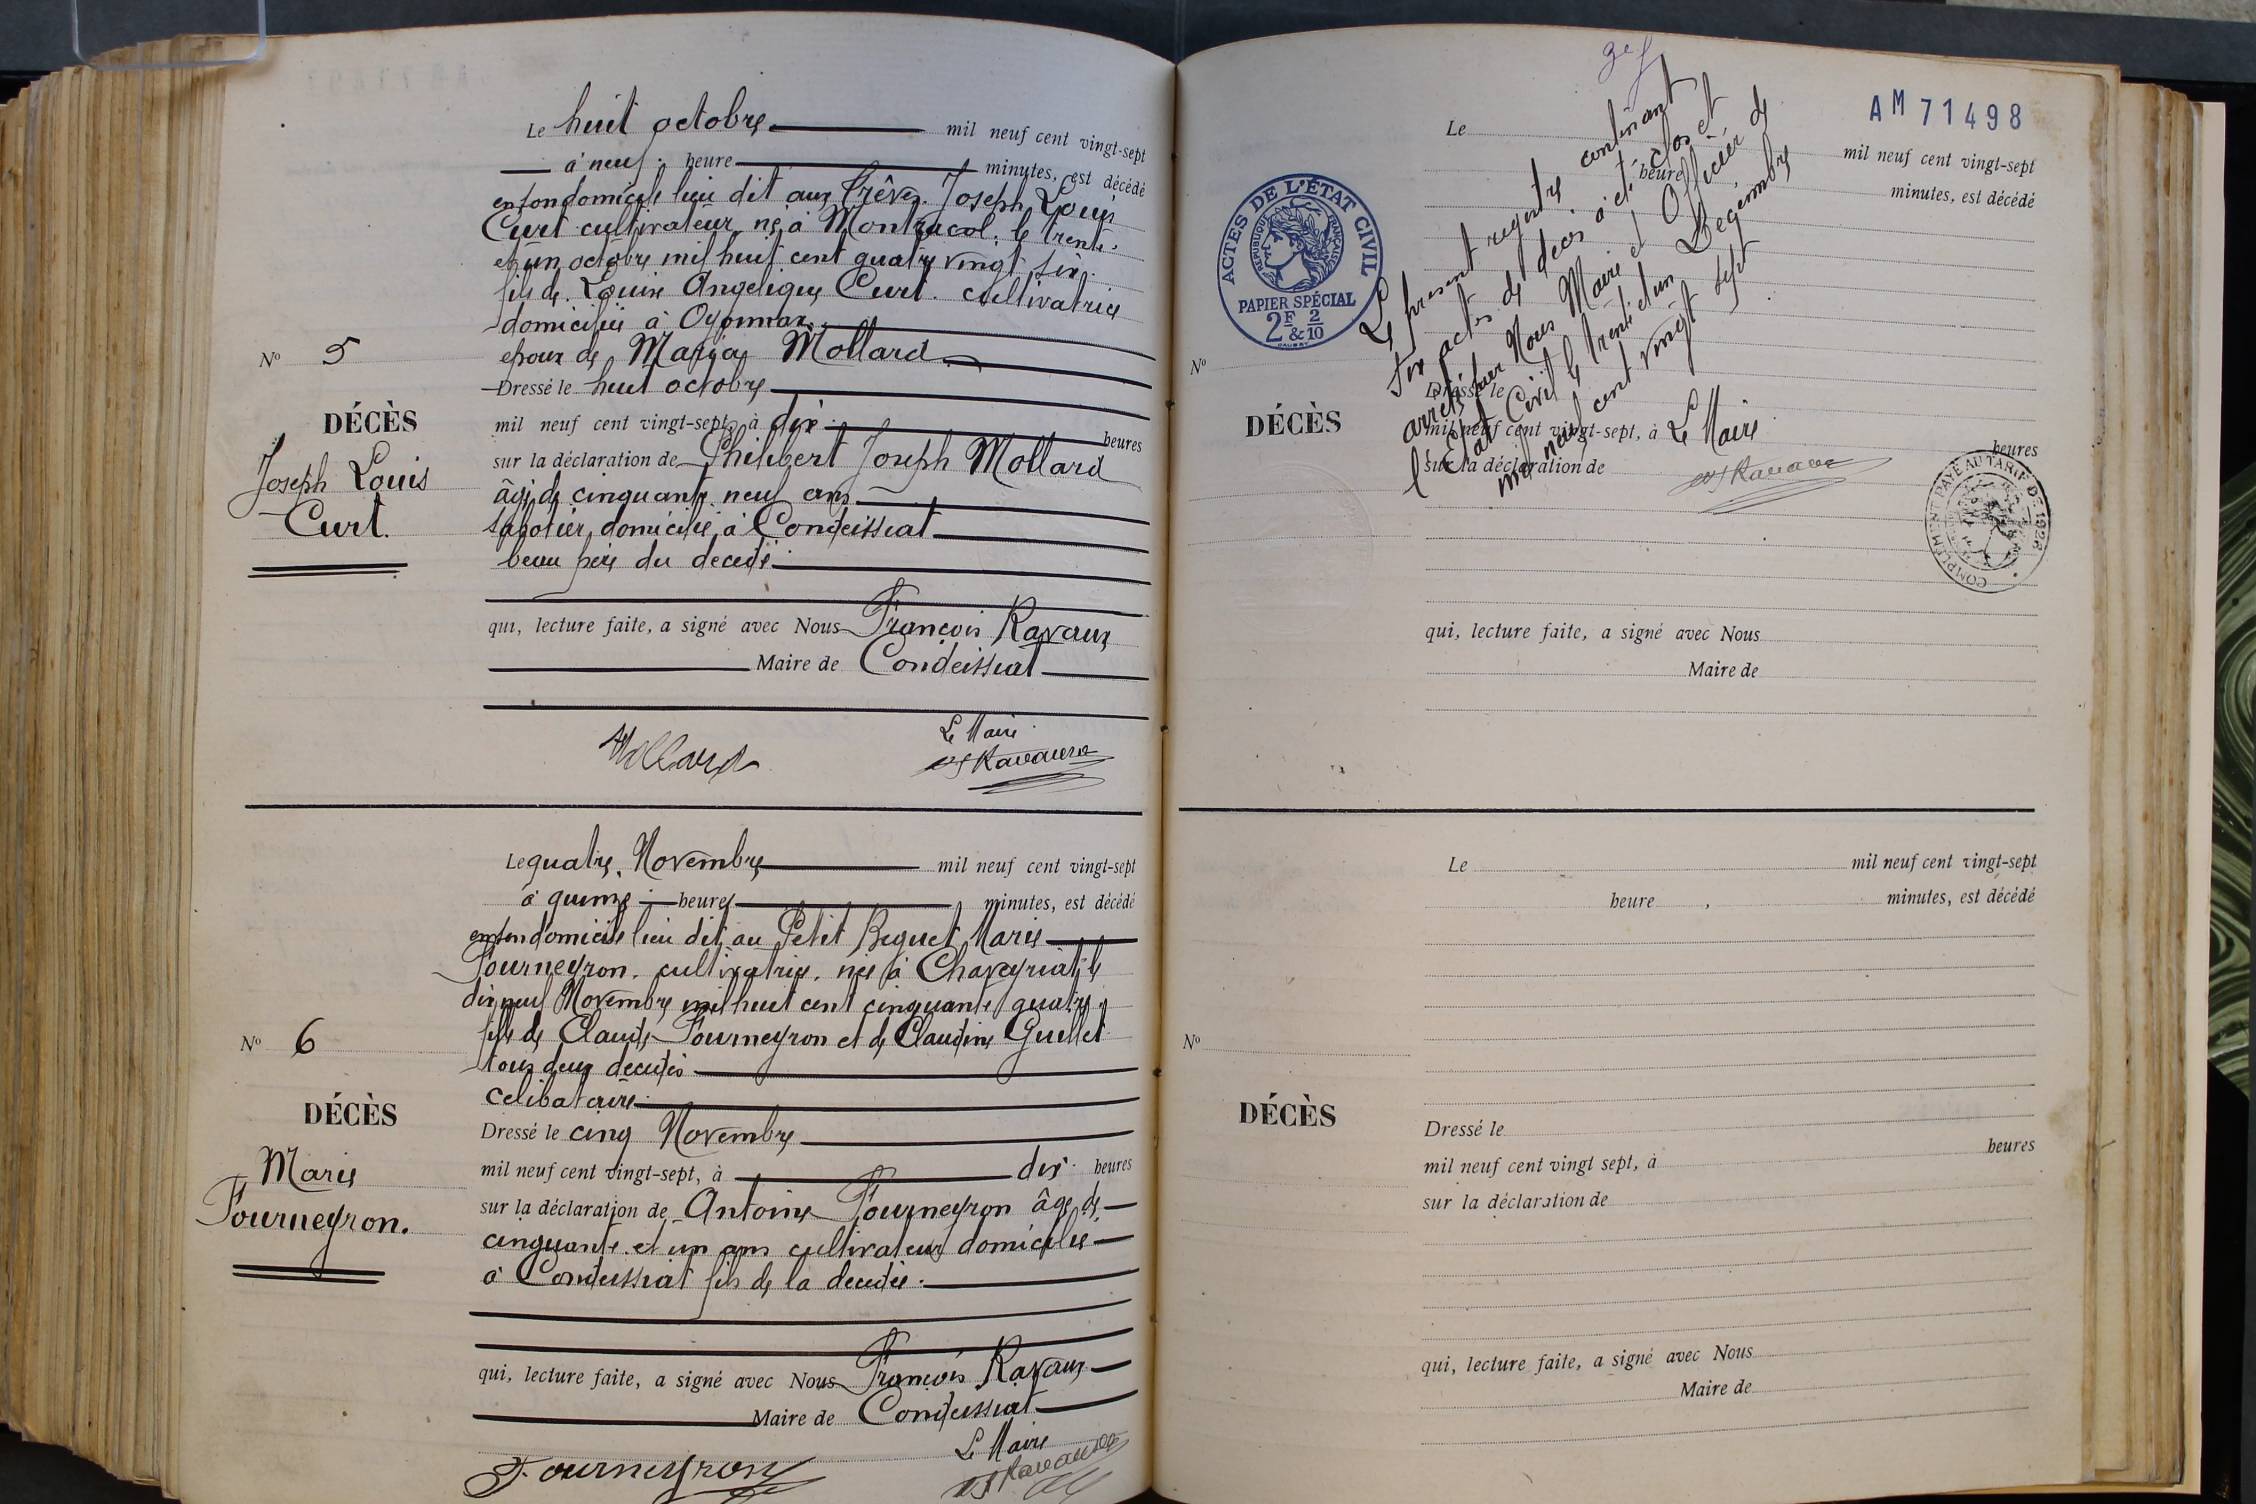 Le huit octobre mil neuf cent vingt-sept
à neuf heure minutes, est décédé
en son domicile lieu dit aux Frêres Joseph Louis
Curt cultivateur né à Montracol le trente
et un octobre mil huit cent quatre vingt six
fils de Louise Angelique Curt cultivatrice
domiciliée à Oyonnax
epoux de Maria Mollard
Dressé le huit octobre
mil neuf cent vingt-sept, à dix heures
sur la déclaration de Philibert Joseph Mollard
âgé de cinquante neuf ans
sabotier domicilié à Condeissiat
beau père du decedé
qui, lecture faite, a signé avec Nous François Ravaux
Maire de Condeissiat
Le Maire
Mollard
Ravaux
N° 5
DÉCÈS
Joseph Louis
Curt.
Le quatre Novembre mil neuf cent vingt-sept
à quinze heures minutes, est décédé
en son domicile lieu dit au Petit Beguet Marie
Fourneyron cultivatrice née à Chaveyriat le
dix neuf Novembre mil huit cent cinquante quatre
fille de Claude Fourneyron et de Claudine Guillet
tous deux decedés
celibataire
Dressé le cinq Novembre
mil neuf cent vingt-sept, à dix heures
sur la déclaration de Antoine Fourneyron âgé de
cinquante et un ans cultivateur domicilié
à Condeissiat fils de la decedée
qui, lecture faite, a signé avec Nous François Ravaux
Maire de Condeissiat
Le Maire
Fourneyron
Ravaux
N° 6
DÉCÈS
Marie
Fourneyron.
AM 71498
ACTES DE L'ÉTAT CIVIL
RÉPUBLIQUE FRANÇAISE
PAPIER SPÉCIAL
2F & 2/10
Le présent registre contenant
six actes de décès a été clos et
arrêté par Nous Maire et Officier de
l'Etat Civil le trente et un Decembre
mil neuf cent vingt sept
Le Maire
Ravaux
COMPLÉMENT PAYÉ AU TARIF DE 1926
Le mil neuf cent vingt-sept
heure minutes, est décédé
N°
DÉCÈS
Dressé le
mil neuf cent vingt-sept, à heures
sur la déclaration de
qui, lecture faite, a signé avec Nous
Maire de
Le mil neuf cent vingt-sept
heure , minutes, est décédé
N°
DÉCÈS
Dressé le
mil neuf cent vingt sept, à heures
sur la déclaration de
qui, lecture faite, a signé avec Nous
Maire de